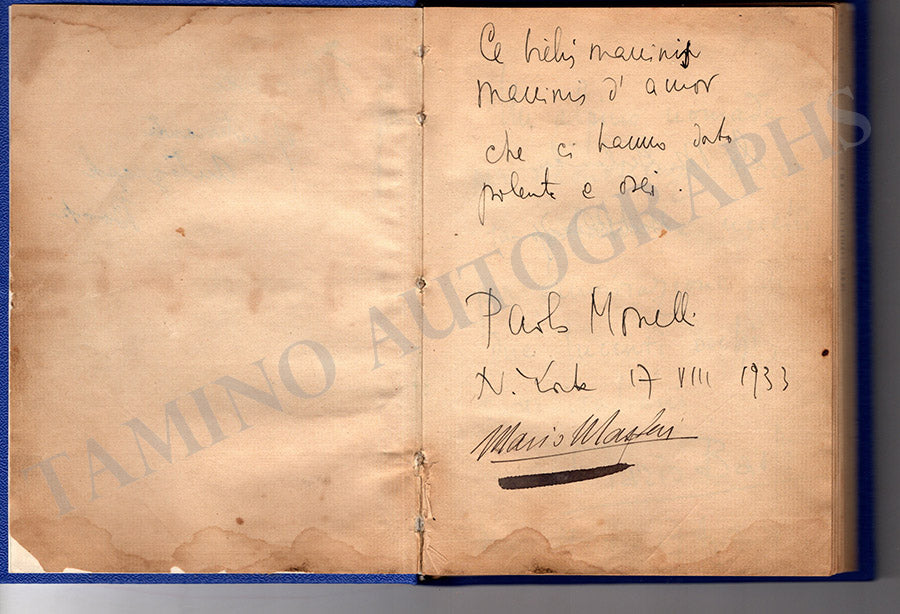 Ce bièlis maninis
maninis d'amor
che ci hanno dato
polenta e osei.
Paolo Monelli
N. York 17 VIII 1933
Mario
TAMINO AUTOGRAPHS